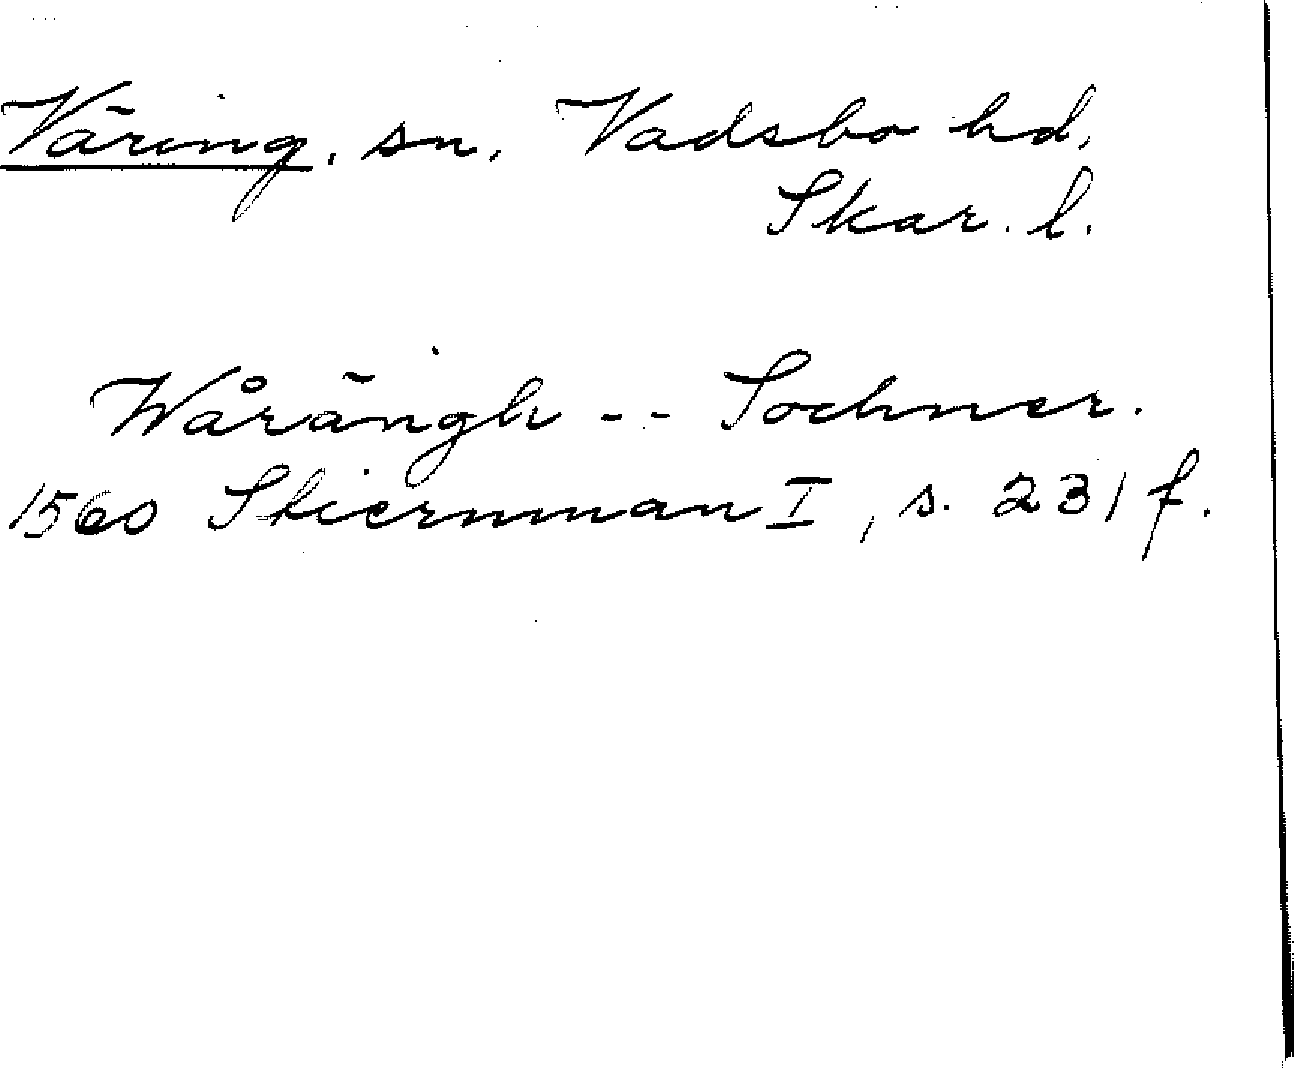 Väring, sn. Vadsbo hd.
Skar. l.
Wårängh -- Sochner.
1560 Stiernman I, s. 231 f.